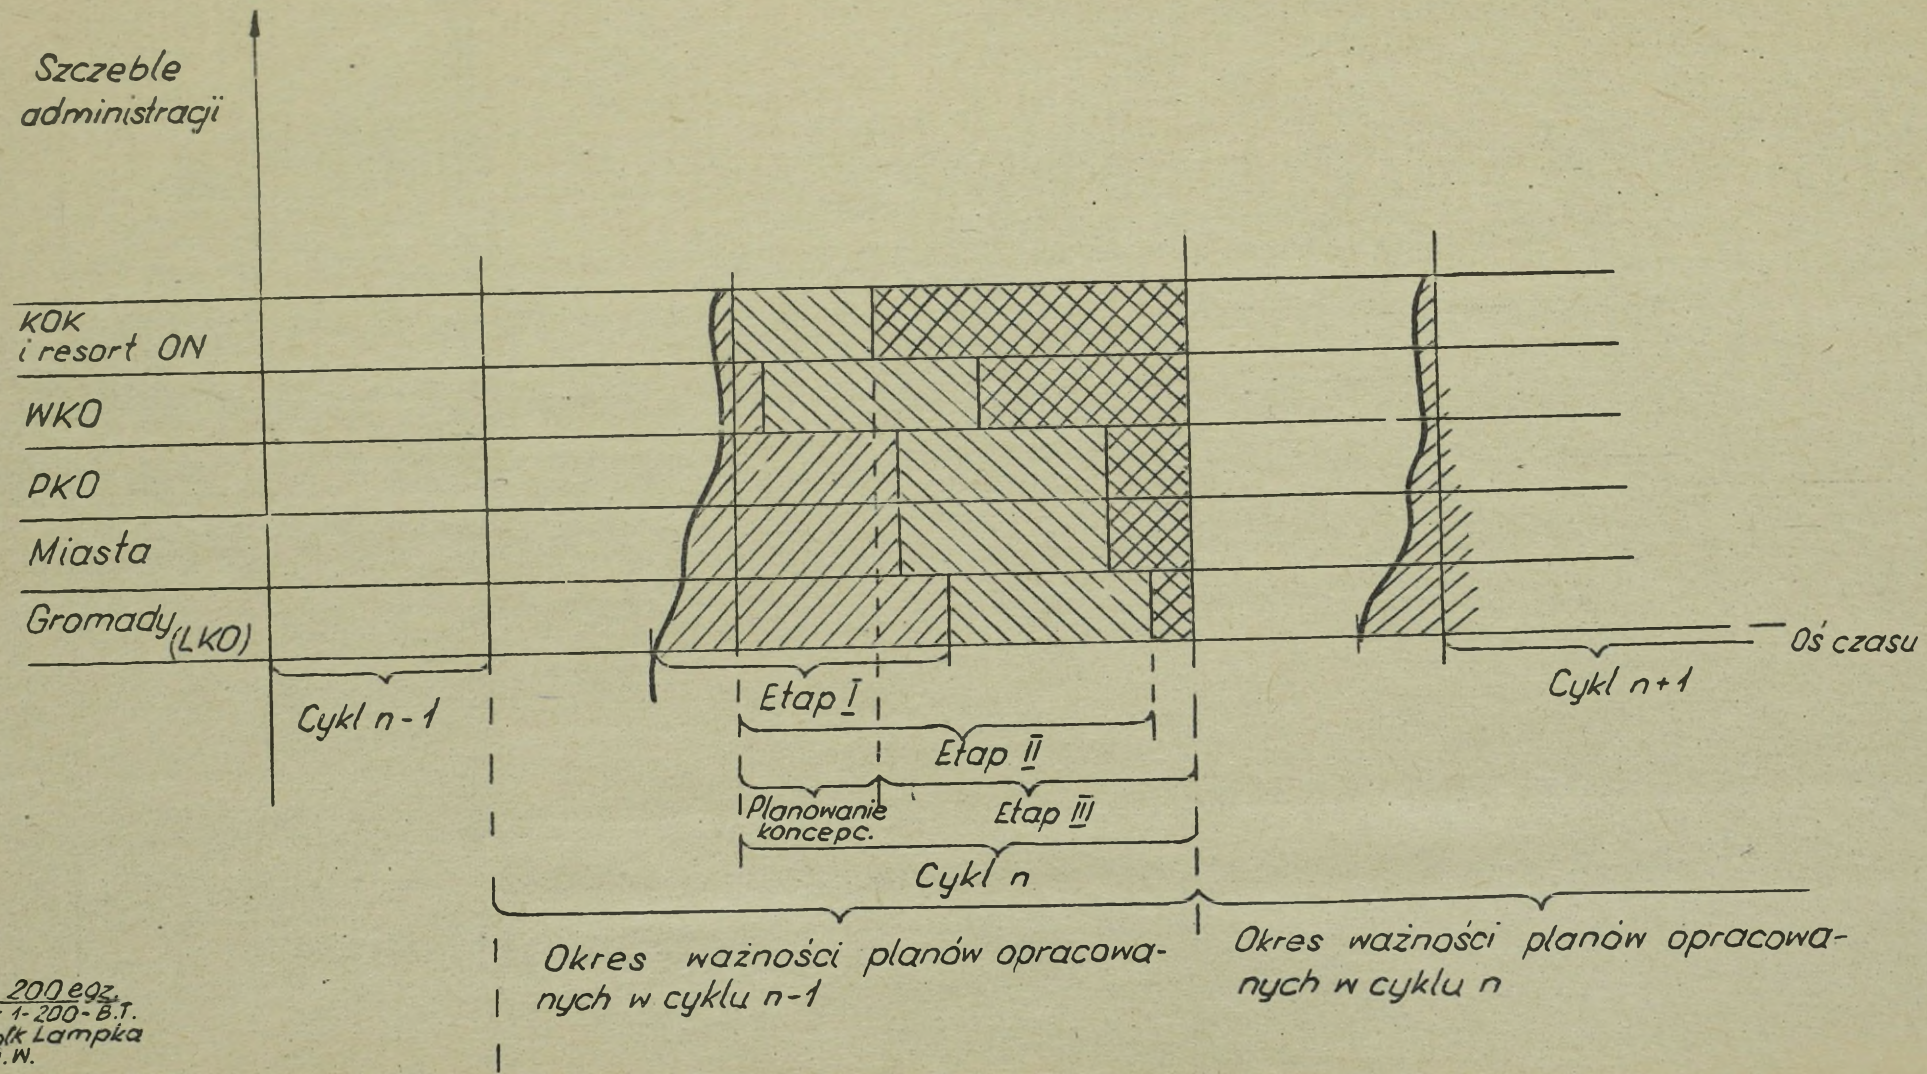 Szczeble
administracji
KOK
i resort ON
WKO
PKO
Miasta
Gromady (LKO)
Oś czasu
Cykl n-1
Etap I
Cykl n+1
Etap II
Planowanie
koncepc.
Etap III
Cykl n
Okres ważności planów opracowa-
nych w cyklu n-1
Okres ważności planów opracowa-
nych w cyklu n
200 egz.
1-200-B.T.
Lampka
.W.